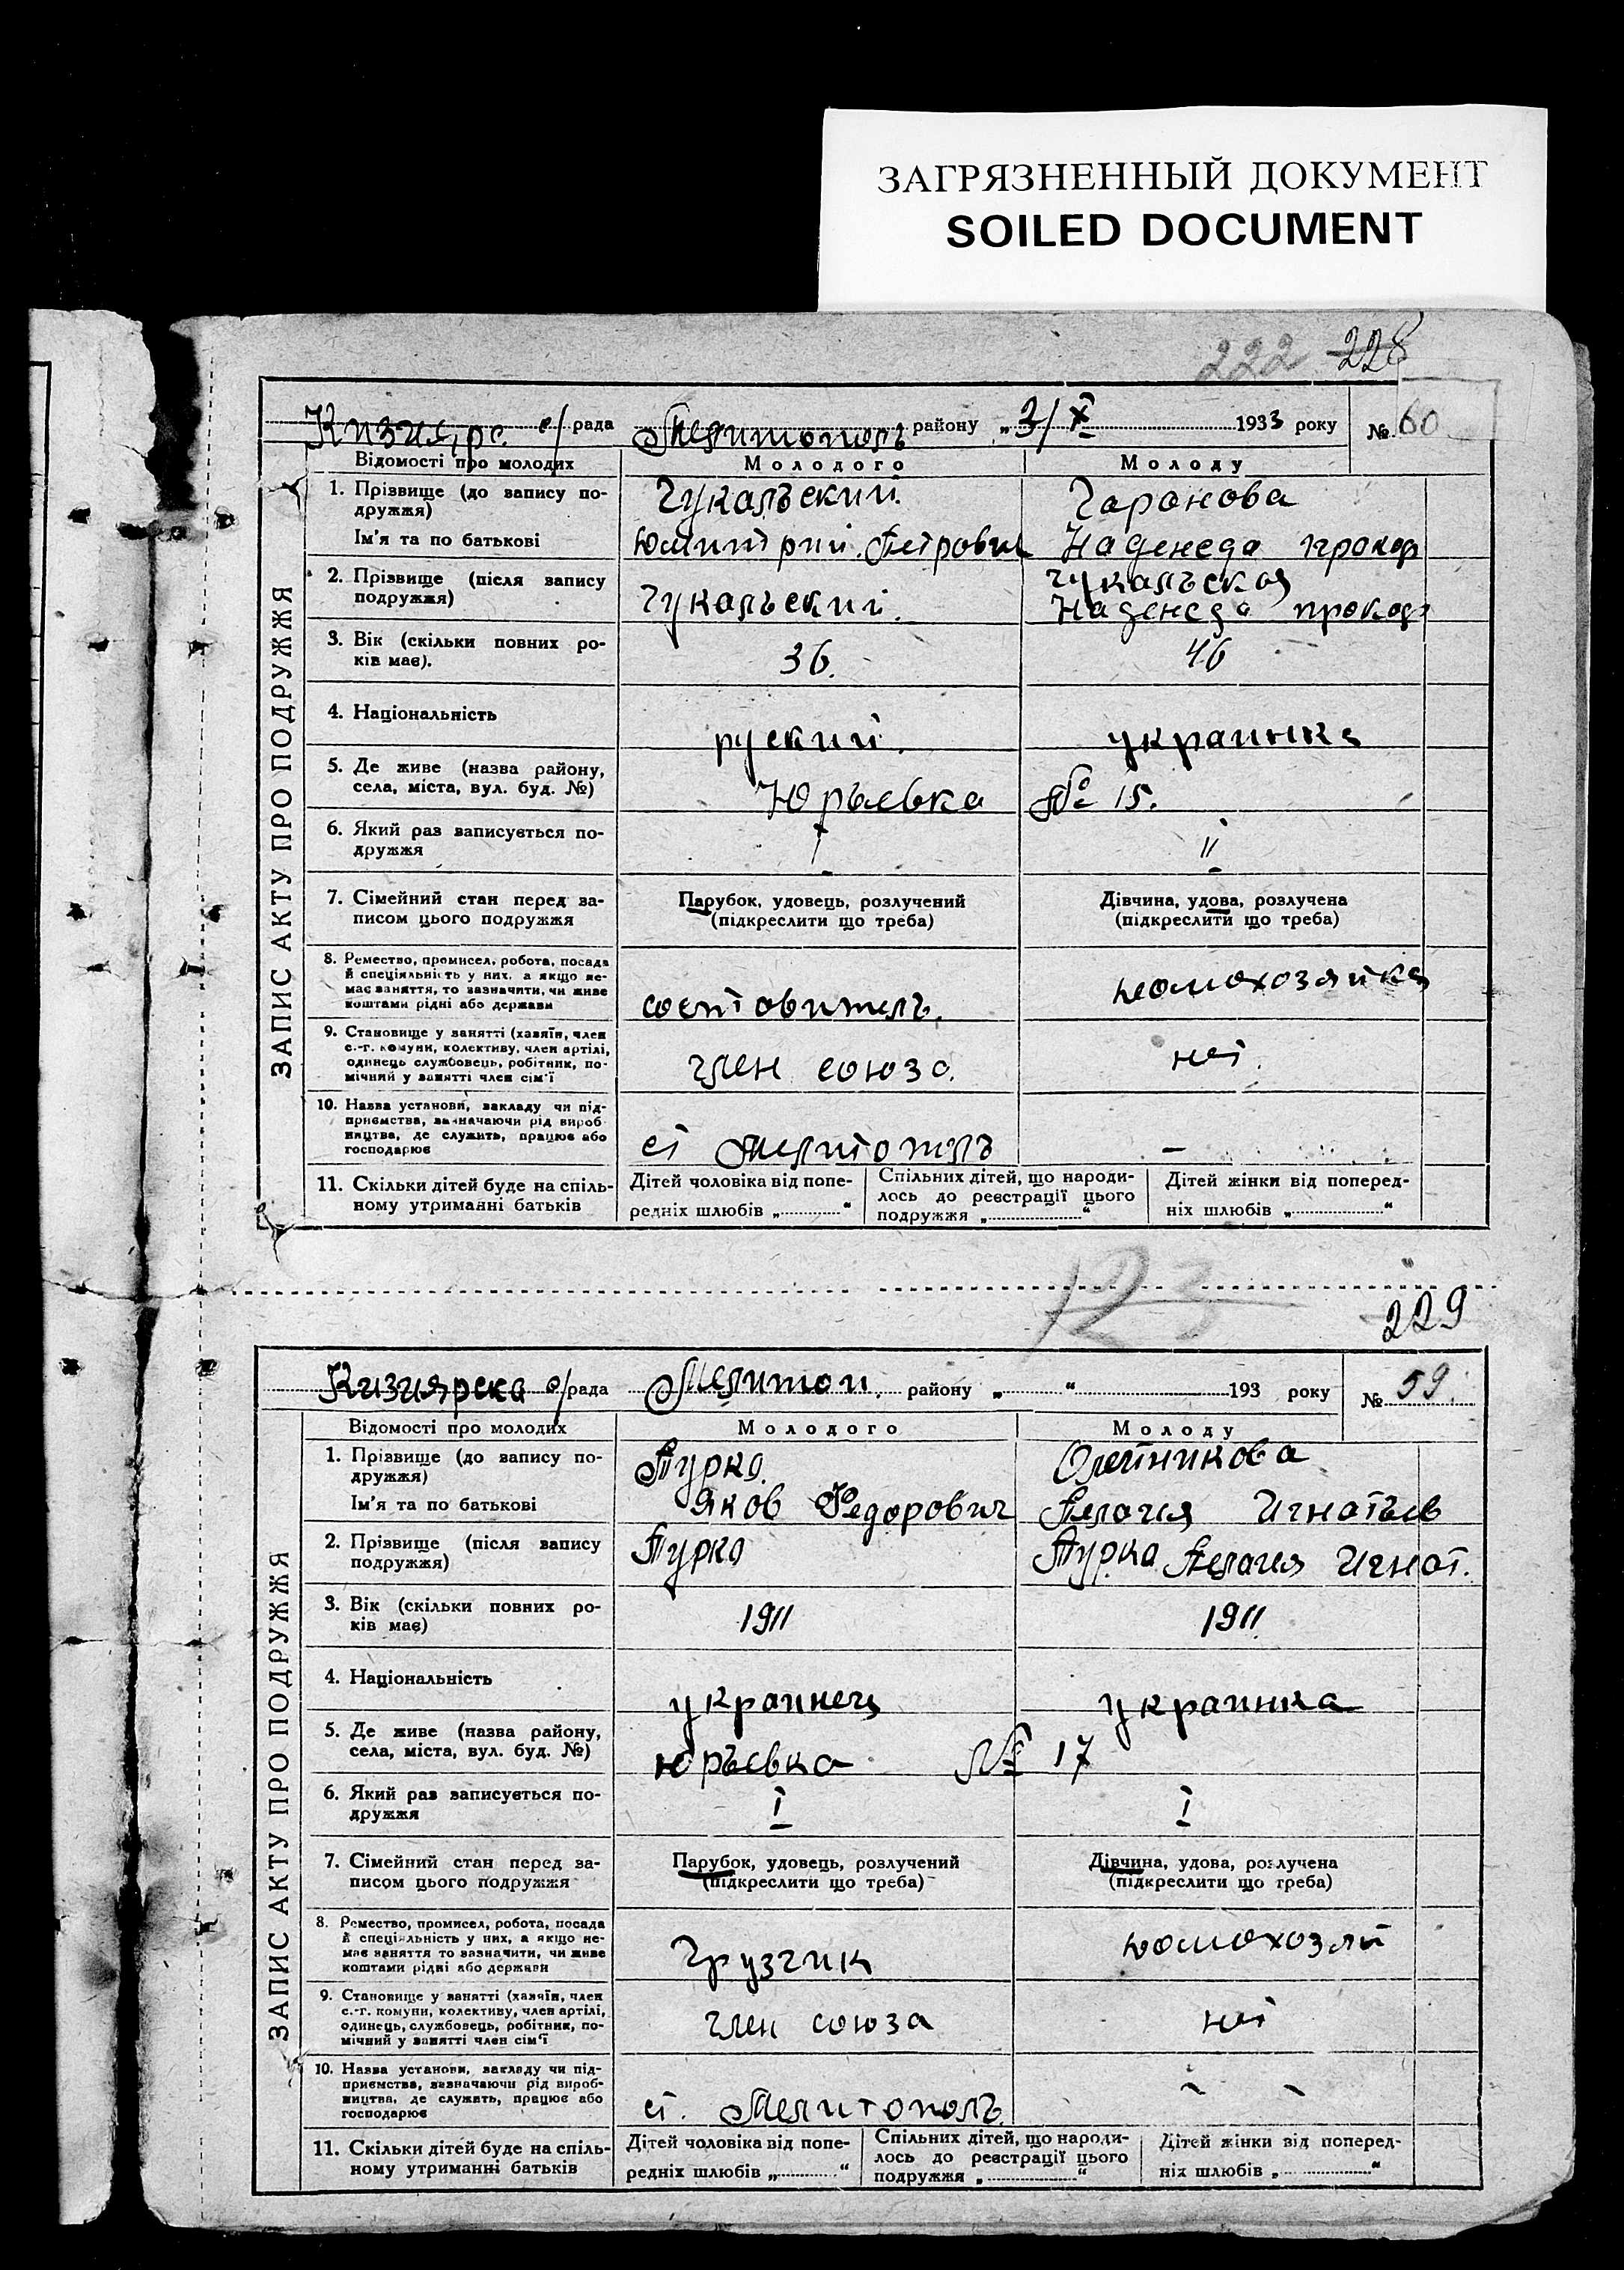 ЗАГРЯЗНЕННЫЙ ДОКУМЕНТ
SOILED DOCUMENT
222 228
Кизиярс. с/рада Мелитополь району „3/X 1933 року № 60
ЗАПИС АКТУ ПРО ПОДРУЖЖЯ
Відомості про молодих Молодого Молоду
1. Прізвище (до запису по- Чукальский. Гаранова
дружжя)
Ім'я та по батькові Петрович Надежда прокоф
2. Прізвище (після запису Чукальская
подружжя) Чукальский. Надежда прокоф
3. Вік (скільки повних ро- 36. 46
ків має).
4. Національність руский. украинка
5. Де живе (назва району, Юрьевка № 15.
села, міста, вул. буд. №)
6. Який раз записується по- I II
дружжя
7. Сімейний стан перед за- Парубок, удовець, розлучений Дівчина, удова, розлучена
писом цього подружжя (підкреслити що треба) (підкреслити що треба)
8. Ремество, промисел, робота, посада домохозяйка
й спеціяльність у них, а якщо не-
має заняття, то зазначити, чи живе
коштами рідні або держави состовитель.
9. Становище у занятті (хазяїн, член
с.-г. комуни, колективу, член артілі, член союза. неї.
одинець службовець, робітник, по-
мічний у занятті член сім'ї
10. Назва установи, закладу чи під-
приємства, зазначаючи рід вироб
ництва, де служить, працює або ст Мелитополь –
господарює
11. Скільки дітей буде на спіль- Дітей чоловіка від попе- Спільних дітей, що народи- Дітей жінки від поперед-
ному утриманні батьків редніх шлюбів „ “ лось до реєстрації цього ніх шлюбів „ “
подружжя „ “
123
229
Кизиярска с/рада Мелитоп. району „ “ 193 року № 59.
ЗАПИС АКТУ ПРО ПОДРУЖЖЯ
Відомості про молодих Молодого Молоду
1. Прізвище (до запису по- Пурка Олейникова
дружжя)
Ім'я та по батькові Яков Федорович Пелагия Игнатьев
2. Прізвище (після запису Пурка Пурка Пелагия Игнат.
подружжя)
3. Вік (скільки повних ро- 1911 1911
ків має)
4. Національність украинец украинка
5. Де живе (назва району,
села, міста, вул. буд. №) юрьевка № 17
6. Який раз записується по- I I
дружжя
7. Сімейний стан перед за- Парубок, удовець, розлучений Дівчина, удова, розлучена
писом цього подружжя (підкреслити що треба) (підкреслити що треба)
8. Ремество, промисел, робота, посада домохозяй
й спеціяльність у них, а якщо не-
має заняття то зазначити, чи живе Грузчик
коштами рідні або держави
9. Становище у занятті (хазяїн, член
с.-г. комуни, колективу, член артілі, член союза неї
одинець, службовець, робітник, по-
мічний у занятті член сім'ї
10. Назва установи, закладу чи під-
приємства, зазначаючи рід вироб-
ництва, де служить, працює або ст. Мелитополь
господарює
11. Скільки дітей буде на спіль- Дітей чоловіка від попе- Спільних дітей, що народи- Дітей жінки від поперед-
ному утриманні батьків редніх шлюбів „ “ лось до реєстрації цього ніх шлюбів „ “
подружжя „ “